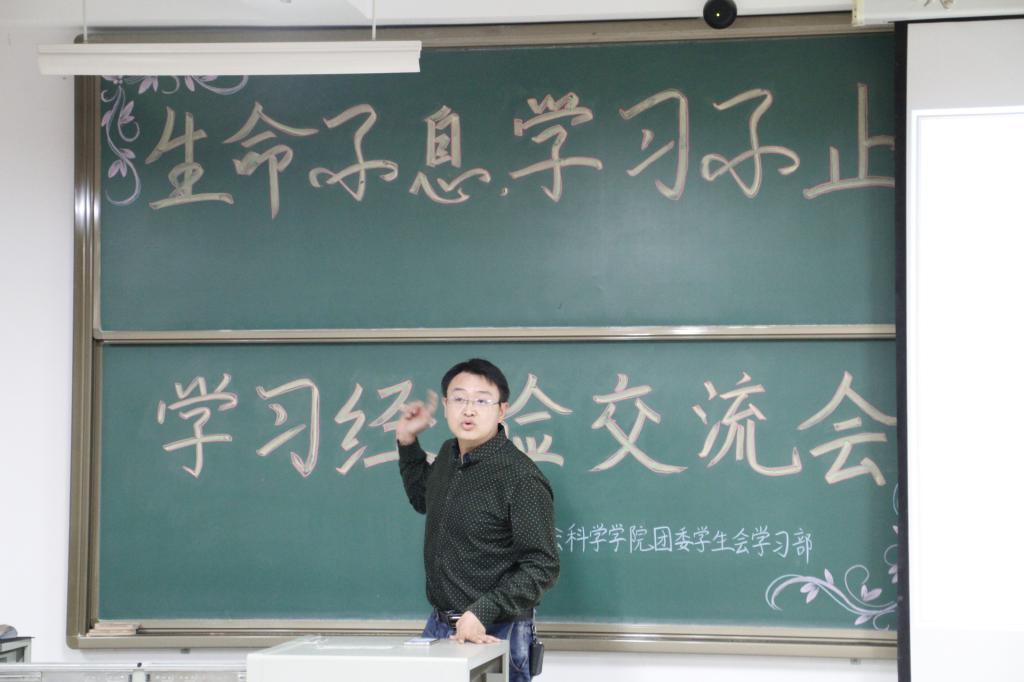 生命不息,学习不止
学习经验交流会
会科学学院团委学生会学习部